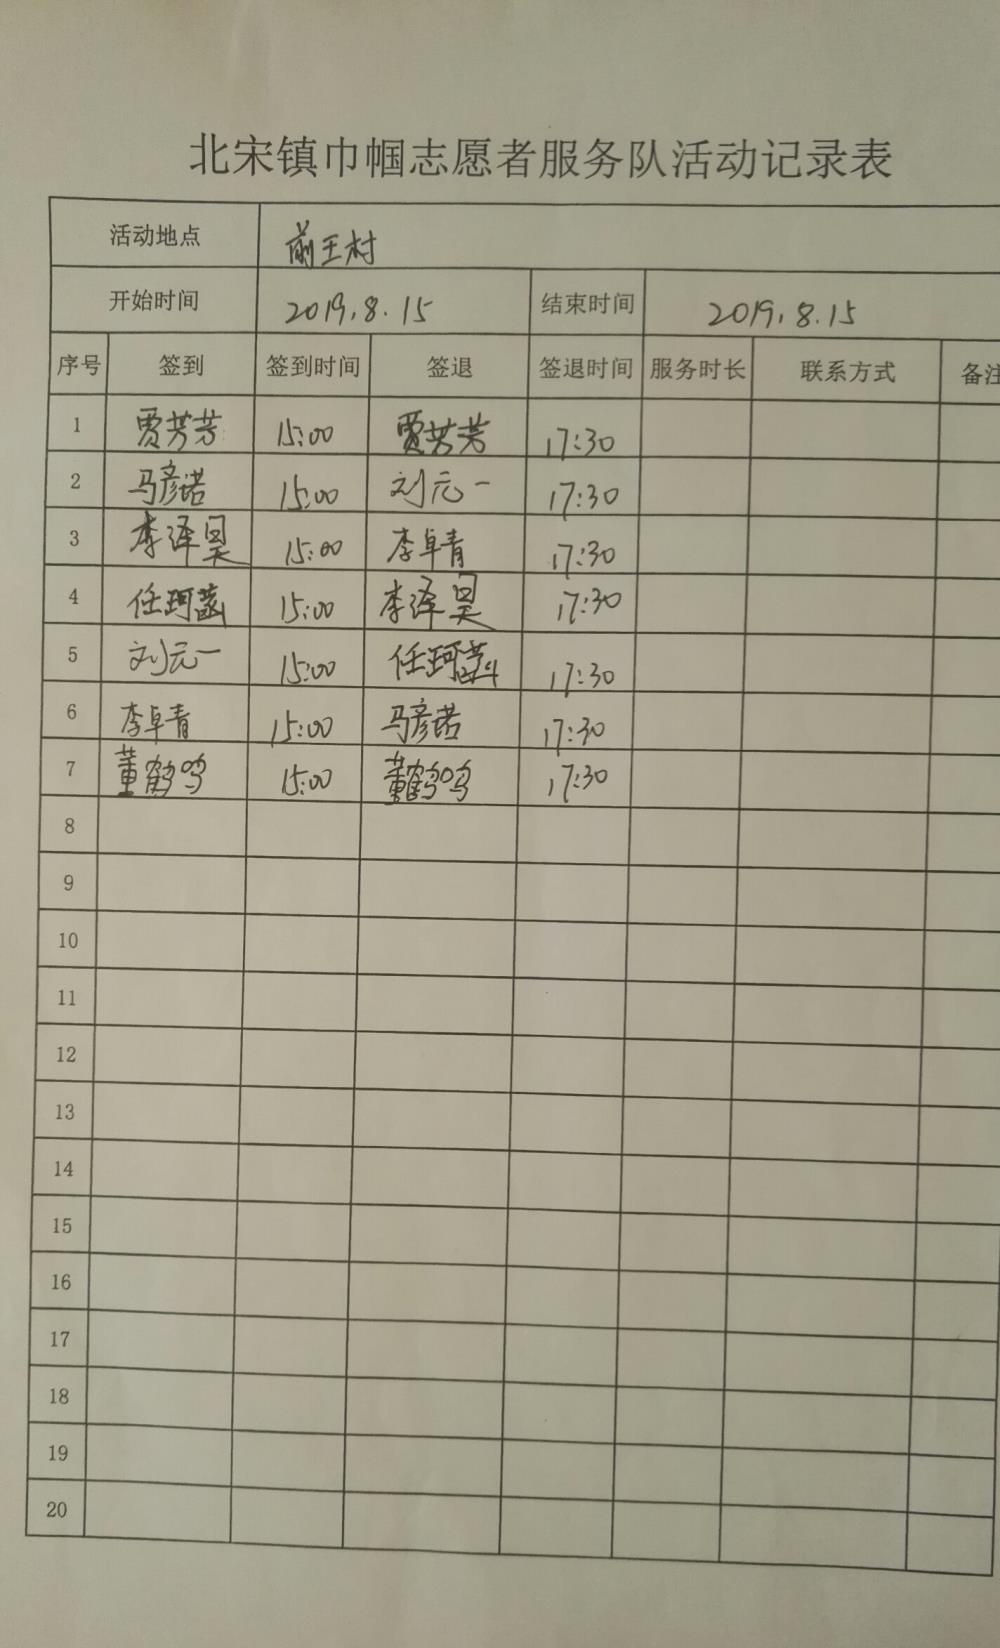 北宋镇巾帼志愿者服务队活动记录表
活动地点 前王村
开始时间 2019.8.15 结束时间 2019.8.15
序号 签到 签到时间 签退 签退时间 服务时长 联系方式 备注
1 贾芳芳 15:00 贾芳芳 17:30
2 马彦诺 15:00 刘元一 17:30
3 李泽昊 15:00 李卓青 17:30
4 任珂菡 15:00 李泽昊 17:30
5 刘元一 15:00 任珂菡 17:30
6 李卓青 15:00 马彦诺 17:30
7 董鹤鸣 15:00 董鹤鸣 17:30
8
9
10
11
12
13
14
15
16
17
18
19
20